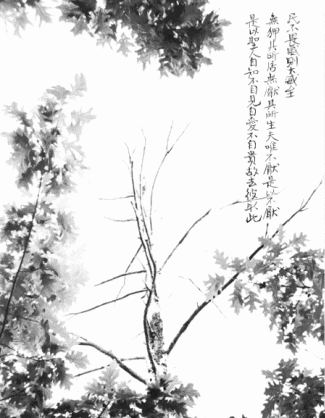 民不畏威則大威至
無狎其所居無厭其所生夫唯不厭是以不厭
是以聖人自知不自見自愛不自貴故去彼取此